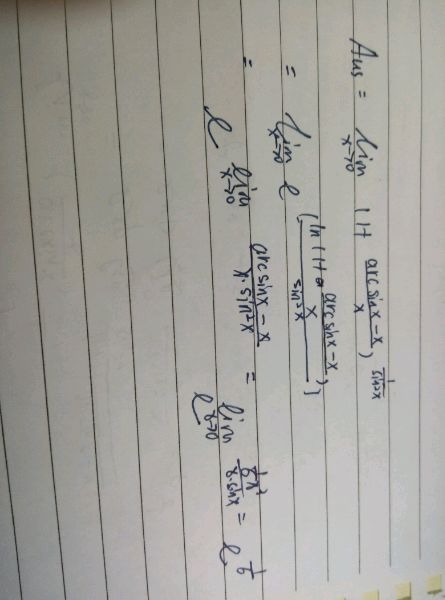 Ans = lim x→0 (1+ (arcsinx-x)/x)^(1/sin²x)
= lim x→0 e^[ln(1+ (arcsinx-x)/x) / sin²x]
= e^(lim x→0 (arcsinx-x)/(x·sin²x)) = e^(lim x→0 (1/6 x³)/(x·sin²x)) = e^(1/6)